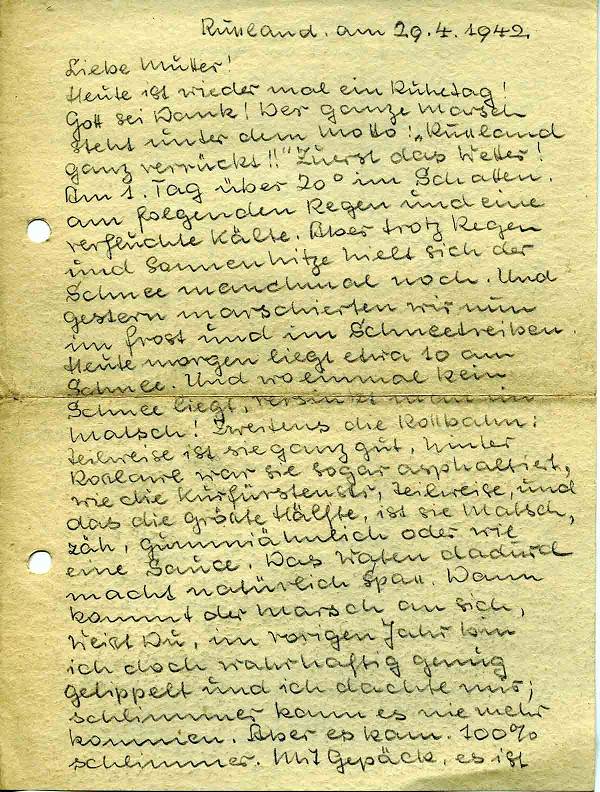 Rußland. am 29.4.1942.
Liebe Mutter!
Heute ist wieder mal ein Ruhetag!
Gott sei Dank! Der ganze Marsch
steht unter dem Motto: „Rußland
ganz verrückt!!" Zuerst das Wetter!
Am 1. Tag über 20° im Schatten.
am folgenden Regen und eine
verfluchte Kälte. Aber trotz Regen
und Sonnenhitze hielt sich der
Schnee manchmal noch. Und
gestern marschierten wir nun
im Frost und im Schneetreiben.
Heute morgen liegt etwa 10 cm
Schnee. Und wo einmal kein
Schnee liegt, versinkt man im
Matsch! Zweitens die Rollbahn:
teilweise ist sie ganz gut, hinter
war sie sogar asphaltiert,
wie die Kurfürstenstr, teilweise, und
das die größte Hälfte, ist sie Matsch,
zäh, gummiähnlich oder wie
eine Sauce. Das Waten dadurch
macht natürlich Spaß. Dann
kommt der Marsch an sich,
Weißt Du, im vorigen Jahr bin
ich doch wahrhaftig genug
getippelt und ich dachte mir;
schlimmer kann es nie mehr
kommen. Aber es kam. 100%
schlimmer. Mit Gepäck, es ist